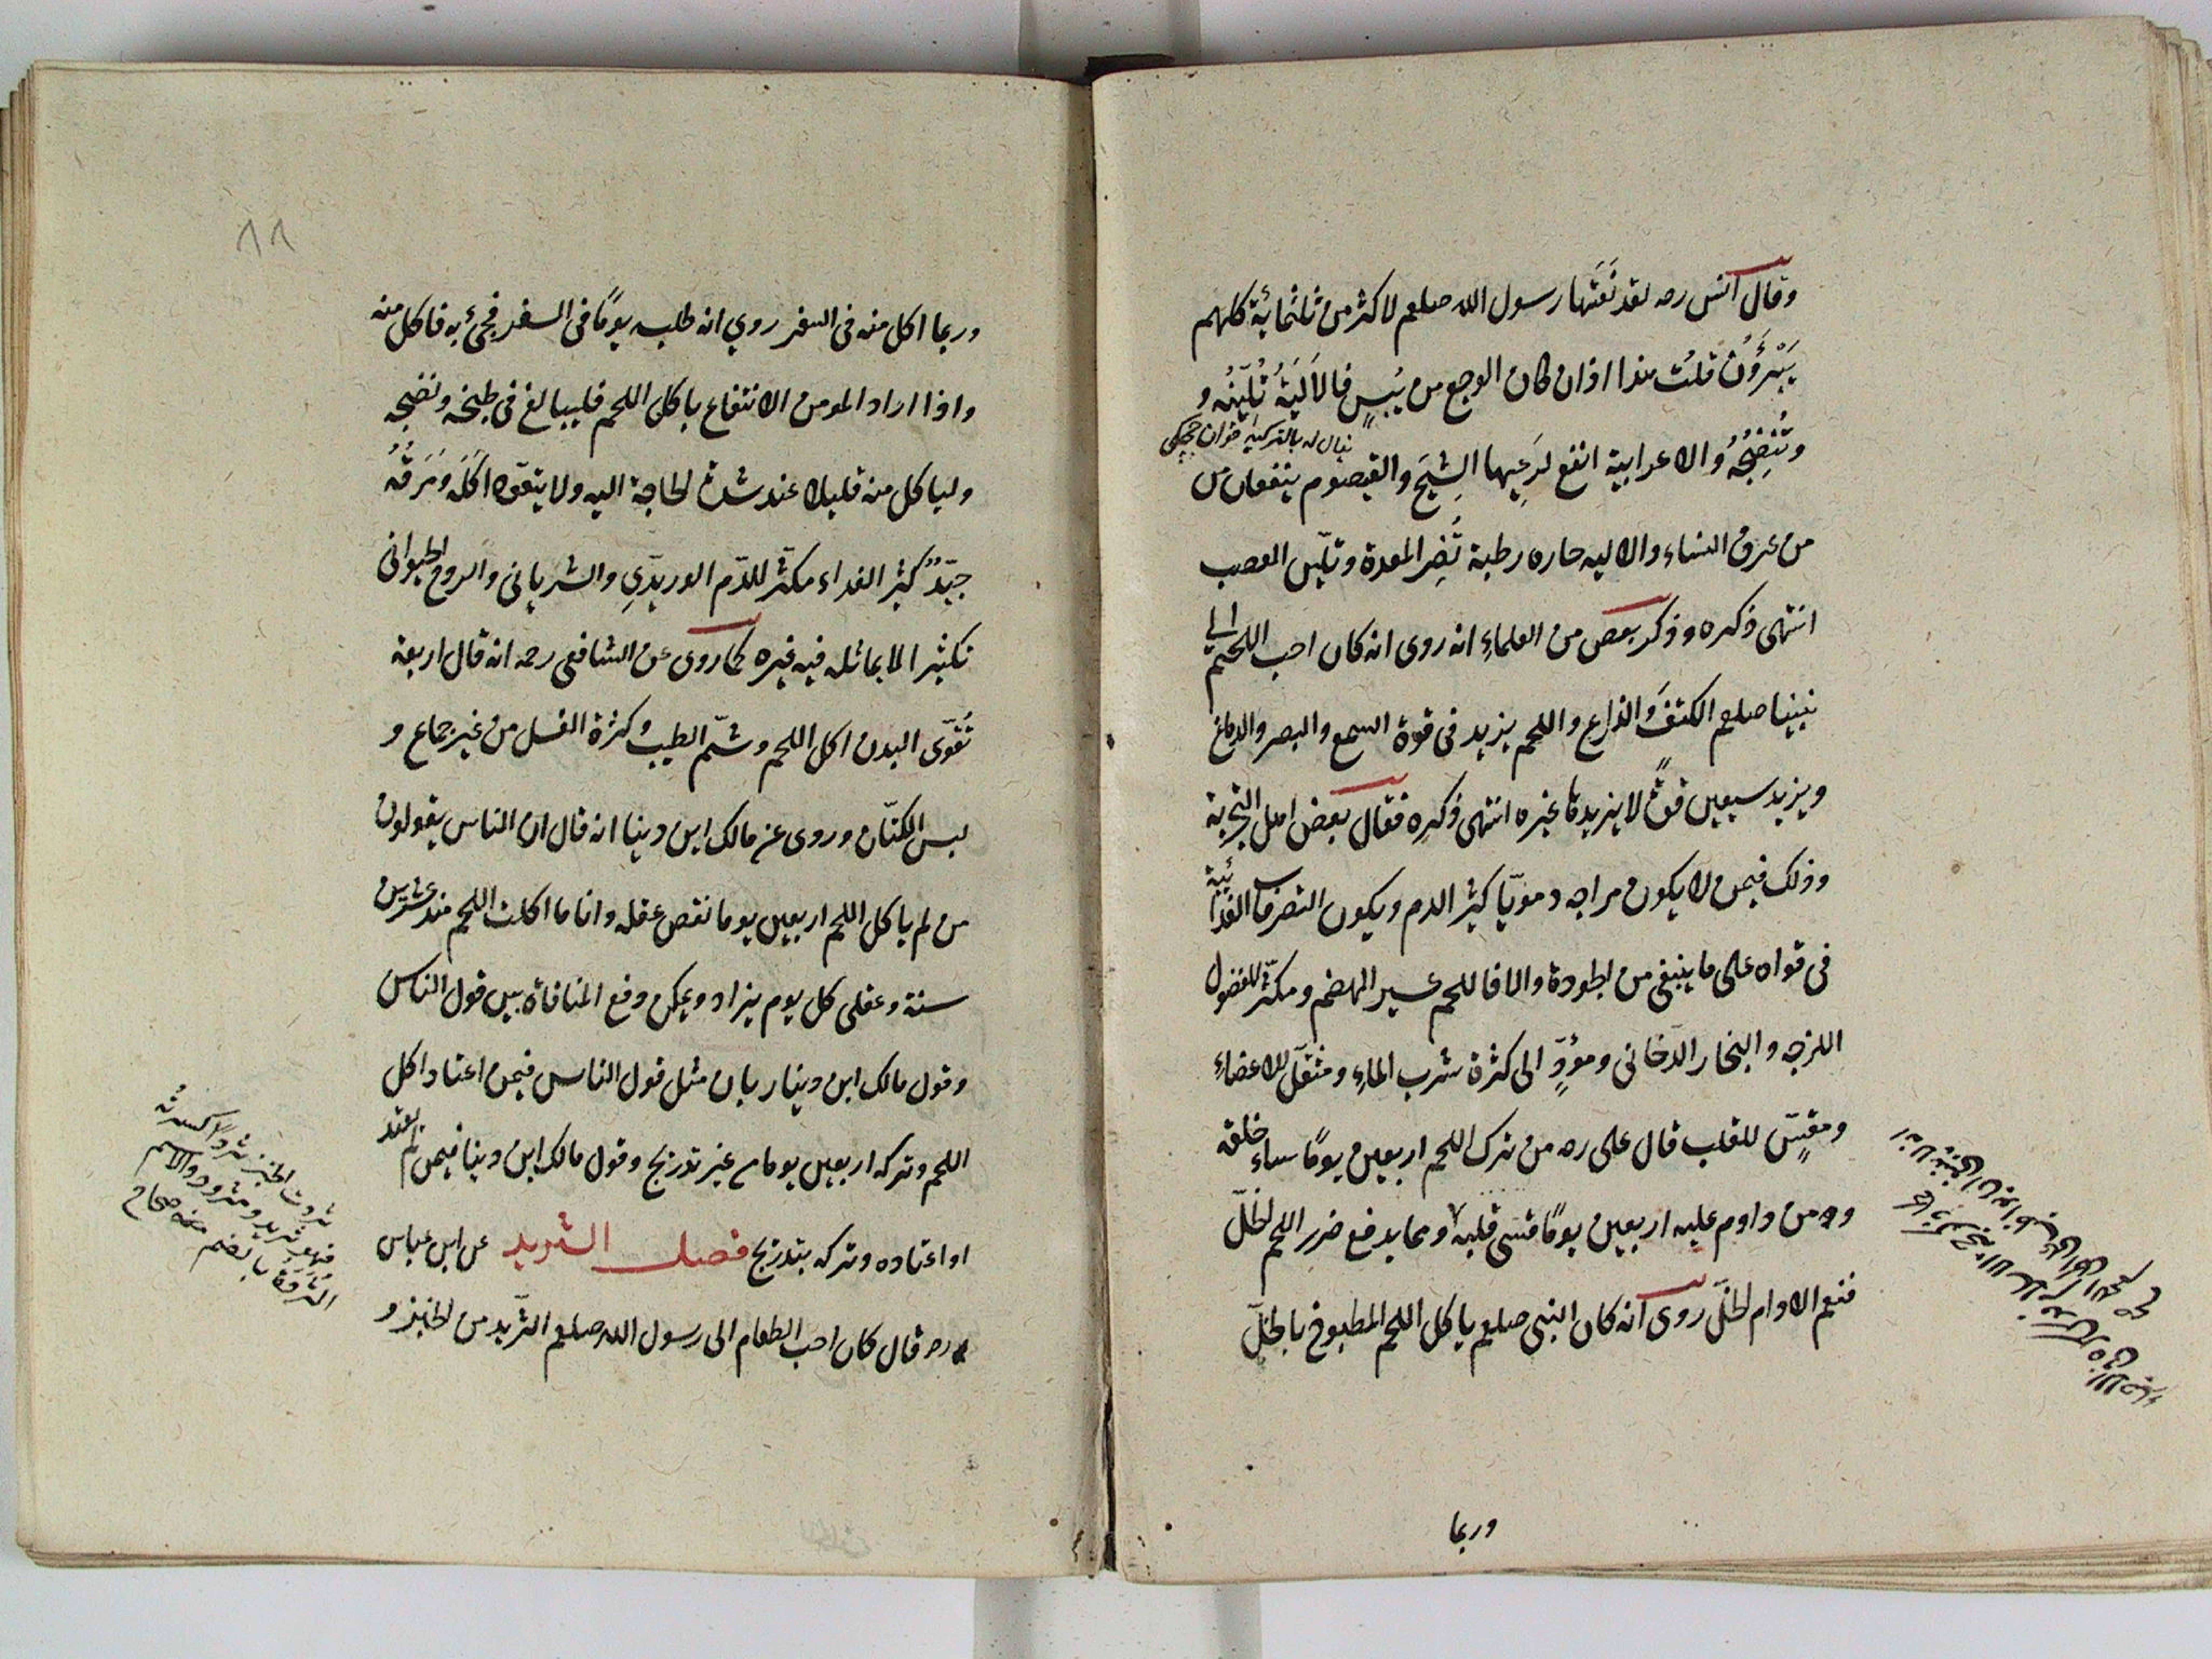 وقال انس رضه لقد نَعَتَها رسول الله صلعم لاكثر من ثلثمائة كلهم
يَبْرَؤُنَ قلتُ هذا اذا كان الوجع من يُبسٍ فالاَليَةُ تُلَيِّنُه و
يقال له بالتركية
وتُنْضِجُهُ والاعرابية انفع لرَعيِها الشِيحَ والقيصوم ينفعان من
من عرق النساء والاليه حاره رطبة تُضِر المعدة وتليّن العصب
انتهى ذكره وذكر بعض من العلماءِ انه روى انه كان احب اللحم الى
نبينا صلعم الكتفَ والذراع واللحم يزيد فى قوة السمع والبصر والدماغ
ويزيد سبعين قوةً لا يزيدها غيره انتهى ذكره فقال بعض اهل التجربة
وذلك فيمن لا يكون مزاجه دمويّا كثير الدم ويكون التصرفات الغذائية
فى قواه على ما ينبغى من الجودة والا فاللحم عسير الهضم ومكثّر للفضول
اللزجه والبخار الدّخانى ومؤدٍّ الى كثرة شرب الماءِ ومثقّل للاعضاءِ
ومقسٍّ للقلب قال على رضه من ترك اللحم اربعين يومًا ساء خلقه
ومن داوم عليه اربعين يومًا قسى قلبه ومما يدفع ضرر اللحم الخلّ
فنعم الادام الخلّ روى انه كان النبى صلعم ياكل اللحم المطبوخ بالخلّ
وربما
وربما اكل منه فى السفر روي انه طلبه يومًا فى السفر فجئ به فاكل منه
واذا اراد المومن الانتفاع باكل اللحم فليبالغ فى طبخه ونضجه
ولياكل منه قليلا عند شدة الحاجة اليه ولا يتعوّد اكلَه ومَرَقُه
جيّدٌ كثير الغداء مكثّر للدّم الوريدّي والشريانى والروح الحيوانى
تكثيرا لا يماثله فيه غيره كما روى عن الشافعى رحمه انه قال اربعة
تُقوّى البدن اكل اللحم وشمّ الطيب وكثرة الغسل من غير جماع و
لبس الكتّان وروى عن مالك ابن دينا انه قال ان الناس يقولون
من لم ياكل اللحم اربعين يوما نقص عقله وانا ما اكلت اللحم منذ عشرين
سنة وعقلى كل يوم يزاد ويمكن دفع المنافاة بين قول الناس
وقول مالك ابن دينار بان مثل قول الناس فيمن اعتاد اكل
اللحم وتركه اربعين يوما من غير تدريج وقول مالك ابن دينا فيمن لم يعتد
او اعتاده وتركه بتدريج فصل الثريد عن ابن عباس
رضه قال كان احب الطعام الى رسول الله صلعم الثّريد من الخبز و
ثردت الخبز ثردًا كسرته
فهو ثريد ومثرود والاسم
الثُردة بالضم صحاح